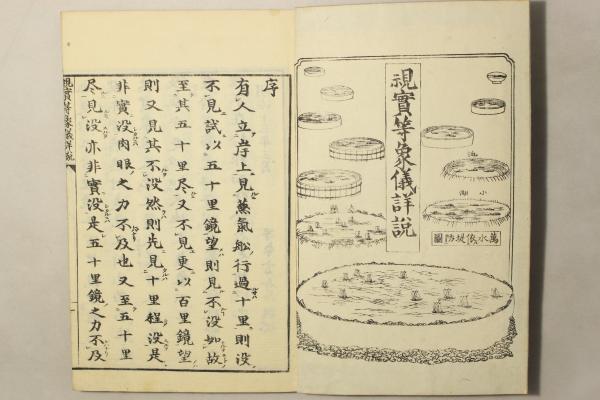 視實等象儀詳説
海
小湖
萬水依堤防圖
序
有人立岸上見蒸氣舩行過十里則没
不見試以五十里鏡望則見不没如故
至其五十里尽又不見更以百里鏡望
則又見其不没然則先見十里程没是
非實没肉眼之力不及也又至五十里
尽見没亦非實没是五十里鏡之力不及
視實等象儀詳説